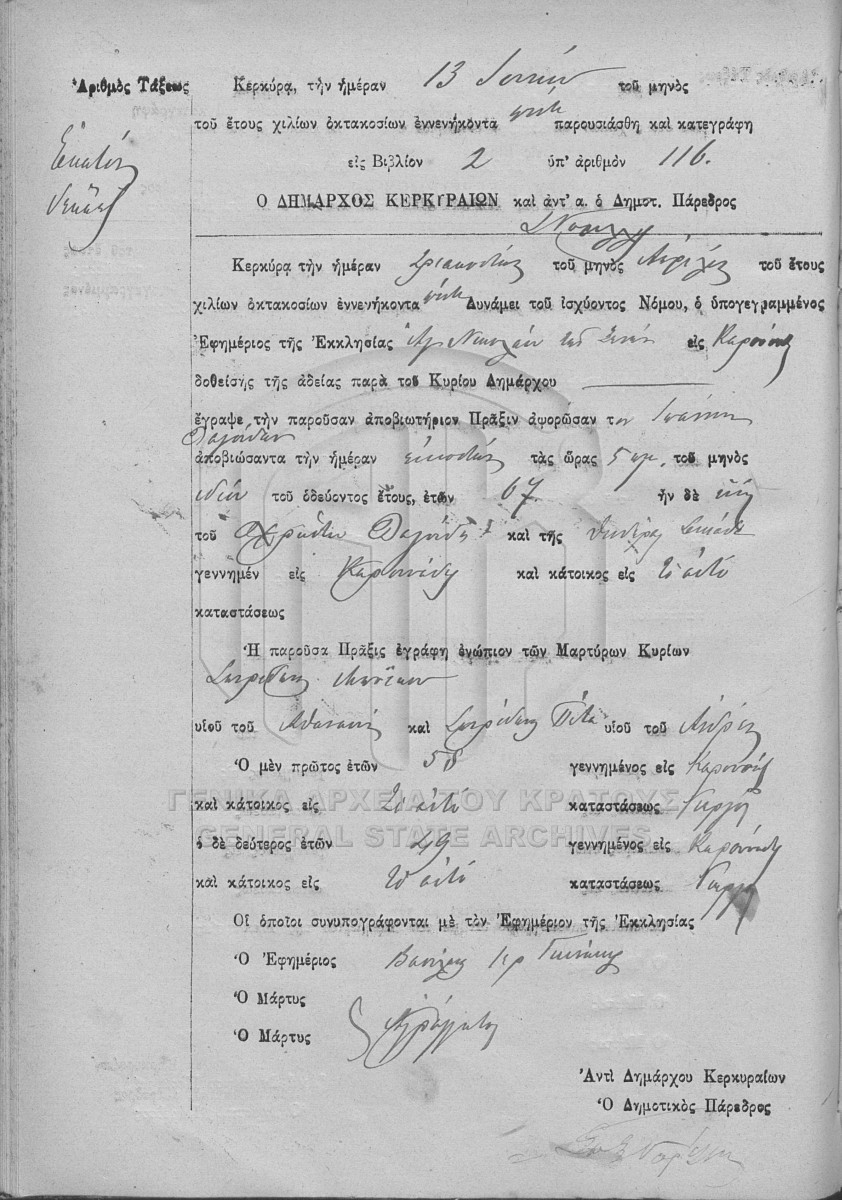 Ἀριθμὸς Τάξεως
Ἑκατὸν
δεκαὲξ
Κερκύρα, τὴν ἡμέραν 13 Ἰουνίου τοῦ μηνὸς
τοῦ ἔτους χιλίων ὀκτακοσίων ἐννενήκοντα πέντε παρουσιάσθη καὶ κατεγράφη
εἰς Βιβλίον 2 ὑπ' ἀριθμὸν 116.
Ο ΔΗΜΑΡΧΟΣ ΚΕΡΚΥΡΑΙΩΝ καὶ ἀντ' α. ὁ Δημοτ. Πάρεδρος
Κερκύρα τὴν ἡμέραν τριακοστὴν τοῦ μηνὸς Ἀπριλίου τοῦ ἔτους
χιλίων ὀκτακοσίων ἐννενήκοντα πέντε Δυνάμει τοῦ ἰσχύοντος Νόμου, ὁ ὑπογεγραμμένος
Ἐφημέριος τῆς Ἐκκλησίας Ἁγ Νικολάου τοῦ εἰς
δοθείσης τῆς ἀδείας παρὰ τοῦ Κυρίου Δημάρχου
ἔγραψε τὴν παροῦσαν ἀποβιωτήριον Πρᾶξιν ἀφορῶσαν τον Ἰωάννην
ἀποβιώσαντα τὴν ἡμέραν εἰκοστὴν τὰς ὥρας 5 πμ. τοῦ μηνὸς
ἰδίου τοῦ ὁδεύοντος ἔτους, ἐτῶν 67 ἦν δὲ υἱὸς
τοῦ καὶ τῆς
γεννημέν εἰς καὶ κάτοικος εἰς τὸ αὐτὸ
καταστάσεως
Ἡ παροῦσα Πρᾶξις ἐγράφη ἐνώπιον τῶν Μαρτύρων Κυρίων
Σπυρίδωνος
υἱοῦ τοῦ Ἀθανασίου καὶ Σπυρίδωνος υἱοῦ τοῦ Ἀνδρέου
Ὁ μὲν πρῶτος ἐτῶν 58 γεννημένος εἰς
καὶ κάτοικος εἰς τὸ αὐτὸ καταστάσεως Γεωργὸς
ὁ δὲ δεύτερος ἐτῶν 29 γεννημένος εἰς
καὶ κάτοικος εἰς τὸ αὐτὸ καταστάσεως Γεωργὸς
Οἱ ὁποῖοι συνυπογράφονται μὲ τὸν Ἐφημέριον τῆς Ἐκκλησίας
Ὁ Ἐφημέριος Βασίλειος
Ὁ Μάρτυς
Ὁ Μάρτυς Ἀγράμματοι
Ἀντὶ Δημάρχου Κερκυραίων
Ὁ Δημοτικὸς Πάρεδρος
ΓΕΝΙΚΑ ΑΡΧΕΙΑ ΤΟΥ ΚΡΑΤΟΥΣ
GENERAL STATE ARCHIVES